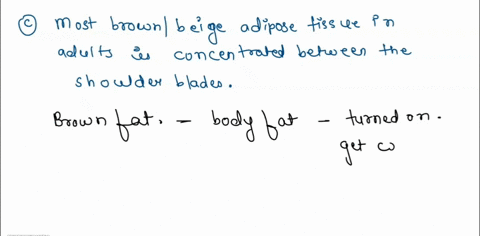 (c) Most brown/beige adipose tissue in
adults is concentrated between the
shoulder blades.
Brown fat. - body fat - turned on.
get co